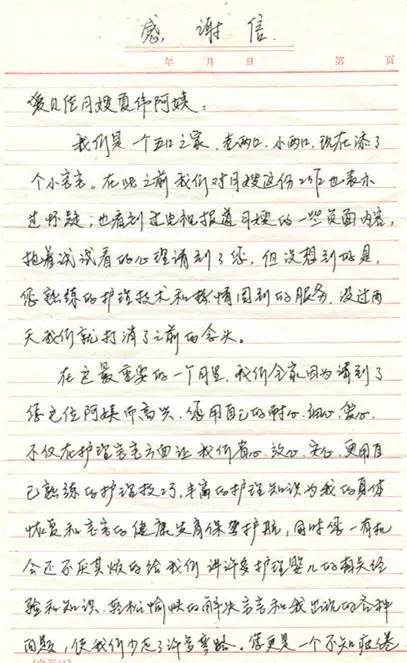 感谢信
年 月 日 第 页
爱贝佳月嫂夏伟阿姨：
我们是一个五口之家，老两口、小两口，现在添了
个小宝宝。在此之前我们对月嫂这份工作也表示
过怀疑；也看到过电视报道月嫂的一些负面内容，
抱着试试看的心理请到了您，但没想到的是，
您熟练的护理技术和热情周到的服务，没过两
天我们就打消了之前的念头。
在这最重要的一个月里，我们全家因为请到了
您这位阿姨而高兴，您用自己的耐心、细心、爱心，
不仅在护理宝宝方面让我们省心、放心、安心，更用自
己熟练的护理技巧，丰富的护理知识为我的身体
恢复和宝宝的健康发育保驾护航，同时您一有机
会还不厌其烦的给我们讲许多护理婴儿的有关经
验和知识、轻松愉快的解决宝宝和我出现的各种
问题，使我们少走了许多弯路。您更是一个不知疲倦